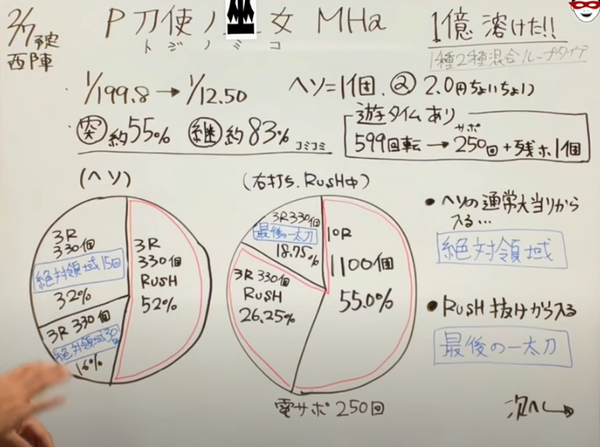 2/7予定
西陣
P刀使ノ巫女 MHa
トジノミコ
1億溶けた!!
1種2種混合ループタイプ
1/199.8→1/12.50
ヘソ=1個. ② 2.0円ちょいちょい
突 約55% 継 約83% コミコミ
遊タイムあり
サポ
599回転→250回+残ホ1個
(ヘソ)
3R
330個
RUSH
52%
3R
330個
絶対領域15回
32%
3R 330個
絶対領域30回
16%
(右打ち.RUSH中)
10R
1100個
55.0%
3R 330個
RUSH
26.25%
3R330個
最後の一太刀
18.75%
電サポ250回
●ヘソの通常大当りから
入る…
絶対領域
●RUSH抜けから入る
最後の一太刀
次へ→